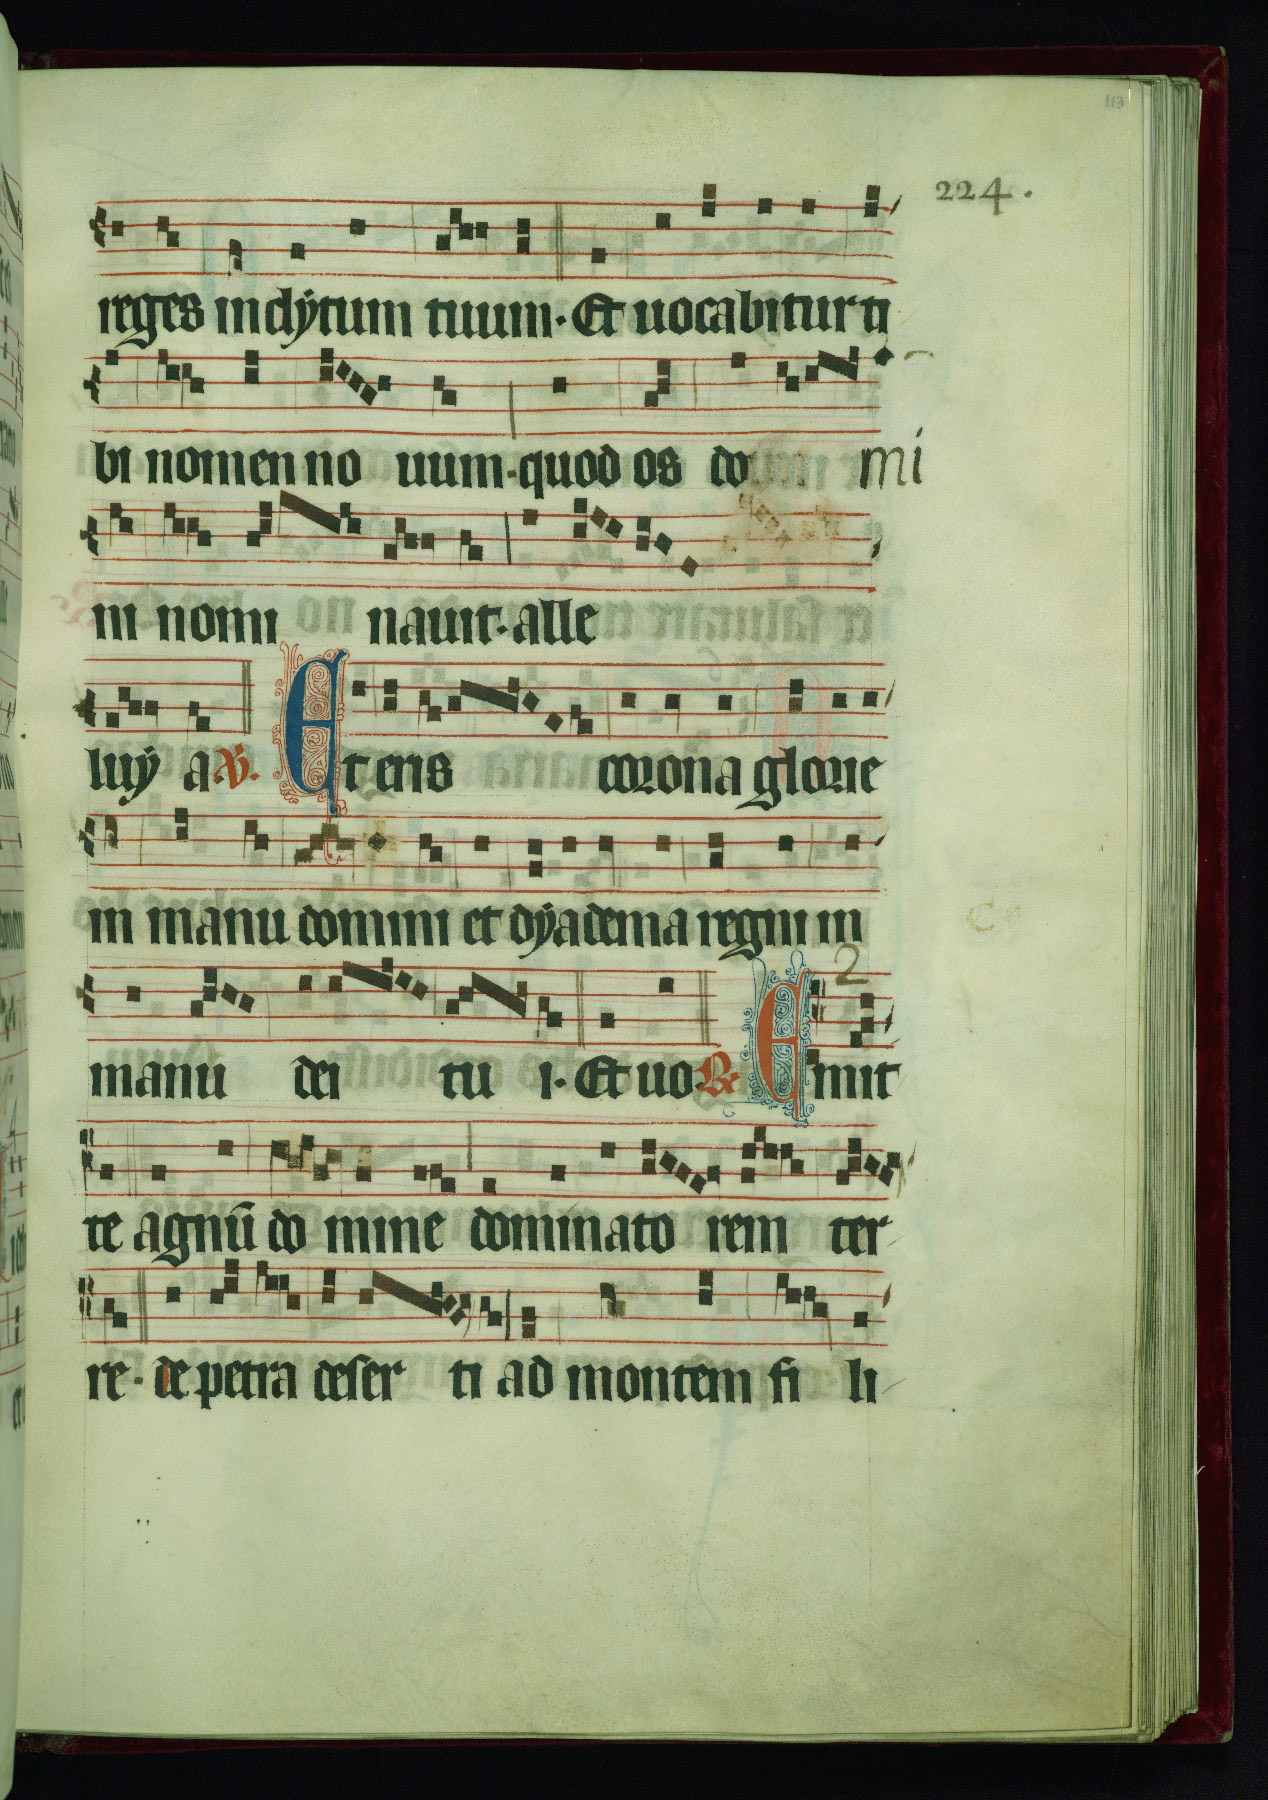 113
224.
reges inclÿtum tuum. Et uocabitur ti
bi nomen no uum. quod os do mi
ni nomi nauit. alle
luÿ a. V. Et eris corona glorie
in manu domini et dÿadema regni in
2
manu dei tu i. Et uo. R. Emit
te agnū do mine dominato rem ter
re. de petra deser ti ad montem fi li